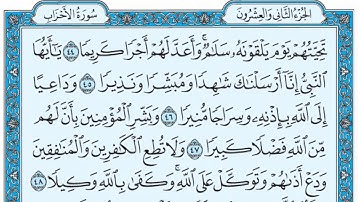 الجزء الثاني والعشرون
سورة الأحزاب
تَحِيَّتُهُمْ يَوْمَ يَلْقَوْنَهُۥ سَلَٰمٌ ۚ وَأَعَدَّ لَهُمْ أَجْرًا كَرِيمًا ٤٤ يَٰٓأَيُّهَا
ٱلنَّبِىُّ إِنَّآ أَرْسَلْنَٰكَ شَٰهِدًا وَمُبَشِّرًا وَنَذِيرًا ٤٥ وَدَاعِيًا
إِلَى ٱللَّهِ بِإِذْنِهِۦ وَسِرَاجًا مُّنِيرًا ٤٦ وَبَشِّرِ ٱلْمُؤْمِنِينَ بِأَنَّ لَهُم
مِّنَ ٱللَّهِ فَضْلًا كَبِيرًا ٤٧ وَلَا تُطِعِ ٱلْكَٰفِرِينَ وَٱلْمُنَٰفِقِينَ
وَدَعْ أَذَىٰهُمْ وَتَوَكَّلْ عَلَى ٱللَّهِ ۚ وَكَفَىٰ بِٱللَّهِ وَكِيلًا ٤٨